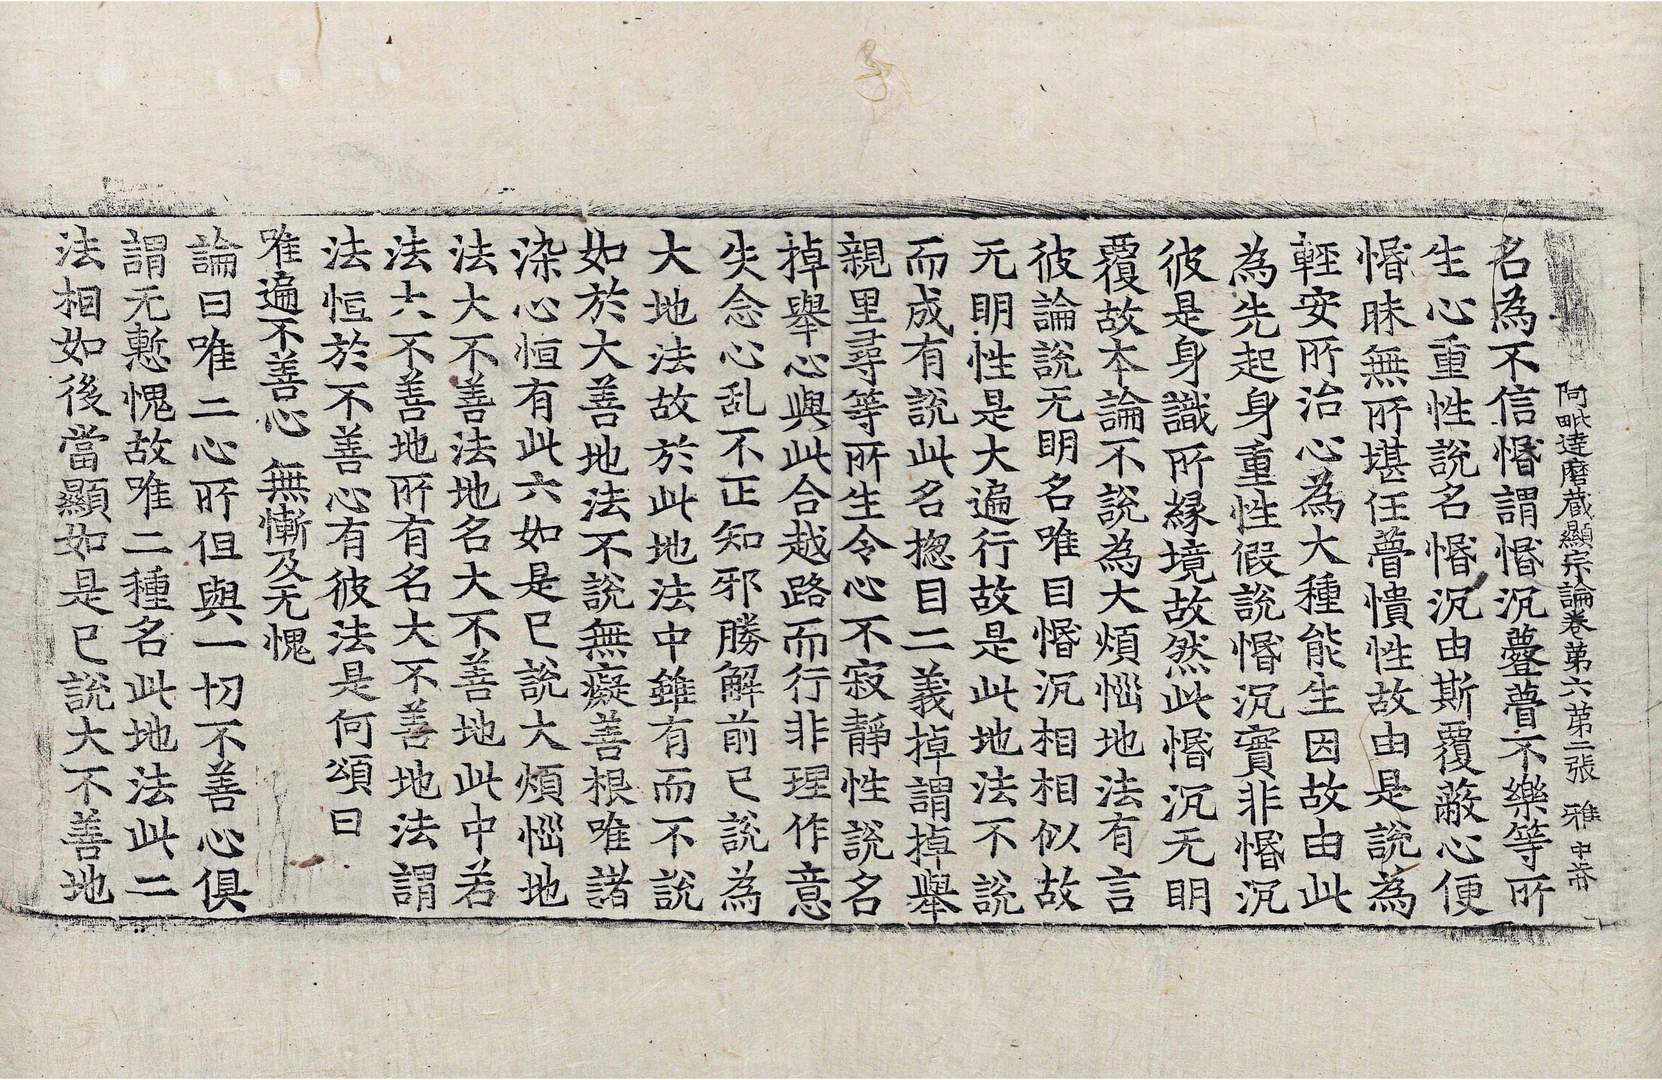 阿毗達磨蔵顯宗論卷第六 苐二張 雅
名為不信惛謂惛沉瞢不樂等所
生心重性說名惛沉由斯覆蔽心便
惛昧無所堪任瞢憒性故由是說為
輕安所治心為大種能生因故由此
為先起身重性假說惛沉實非惛沉
彼是身識所緣境故然此惛沉无明
覆故本論不說為大煩惱地法有言
彼論說无明名唯目惛沉相相似故
无明性是大遍行故是此地法不說
而成有說此名惣目二義掉謂掉舉
親里尋等所生令心不寂靜性說名
掉舉心與此合越路而行非理作意
失念心乱不正知邪勝解前已說為
大地法故於此地法中雖有而不說
如於大善地法不說無癡善根唯諸
染心恒有此六如是已說大煩惱地
法大不善法地名大不善地此中若
法大不善地所有名大不善地法謂
法恒於不善心有彼法是何頌曰
唯遍不善心 無慚及无愧
論曰唯二心所但與一切不善心俱
謂无慙愧故唯二種名此地法此二
法相如後當顯如是已說大不善地